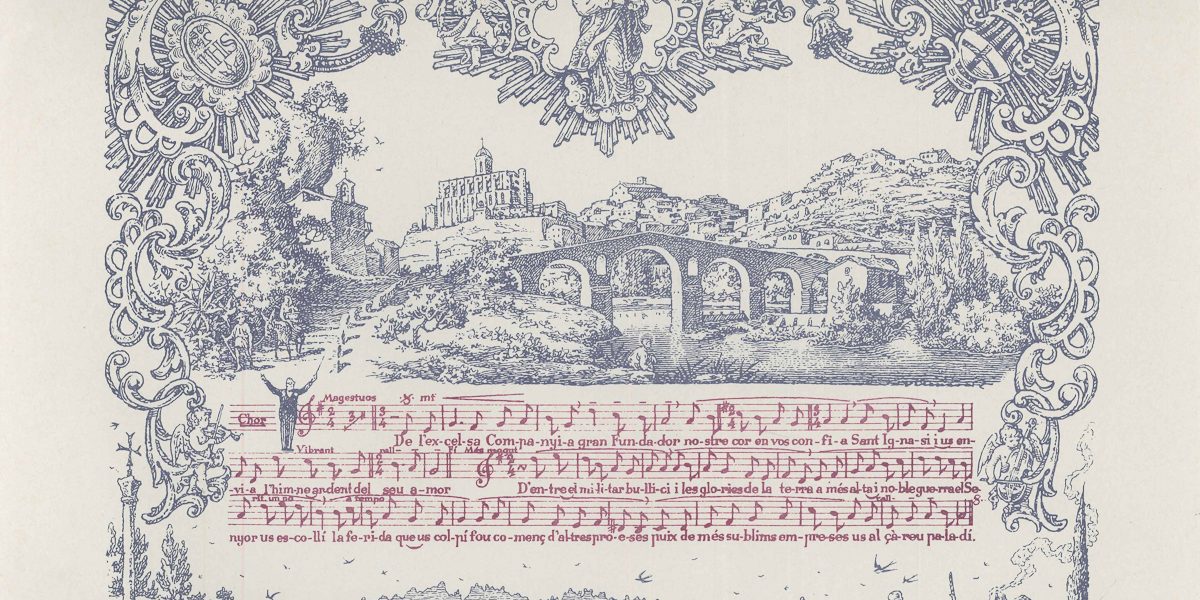 IHS
Magestuos mf
Chor
De l'ex-cel-sa Com-pa-nyi-a gran Fun-da-dor no-stre cor en vos con-fi-a Sant Ig-na-si i us en-
Vibrant rall- Més mogut
-vi-a l'him-ne ardent del seu a-mor D'en-tre el mi-li-tar bu-lli-ci i les glo-ries de la te-rra a més al-ta i no-ble gue-rra el Se-
rit. un po a tempo rall-
nyor us es-co-llí la fe-ri-da que us col-pí fou co-menç d'al-tres pro-e-ses puix de més su-blims em-pre-ses us al çà-reu pa-la-dí.